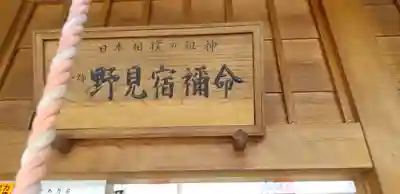 日本相撲の祖神
野見宿禰命